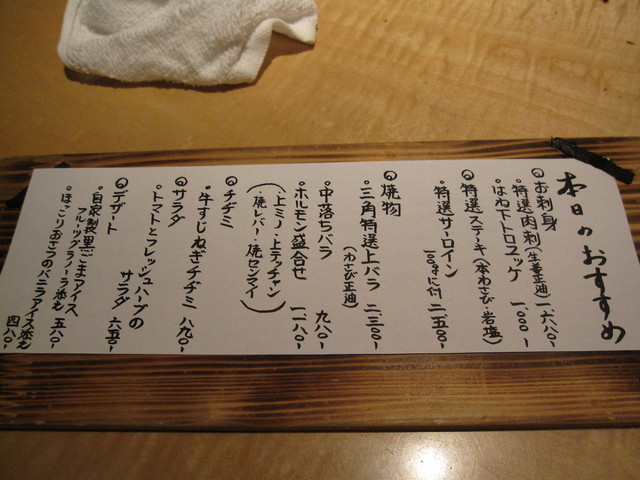 本日のおすすめ
お刺身
特選肉刺(生姜正油) 一、六八〇-
はね下トロユッケ 一、〇〇〇-
特選ステーキ(本わさび・岩塩)
特選サーロイン
100gに付 二、一五〇-
焼物
三角特選上バラ 二、三〇〇-
(わさび正油)
中落ちバラ 九八〇-
ホルモン盛合せ 一、一八〇-
(上ミノ・上テッチャン)
(焼レバー・焼センマイ)
チヂミ
牛すじねぎチヂミ 八九〇-
サラダ
トマトとフレッシュハーブの
サラダ 六五〇-
デザート
自家製黒ごまアイス
フルーツグラノーラ添え 五八〇-
ほっこりおこうのバニラアイス添え
四八〇-